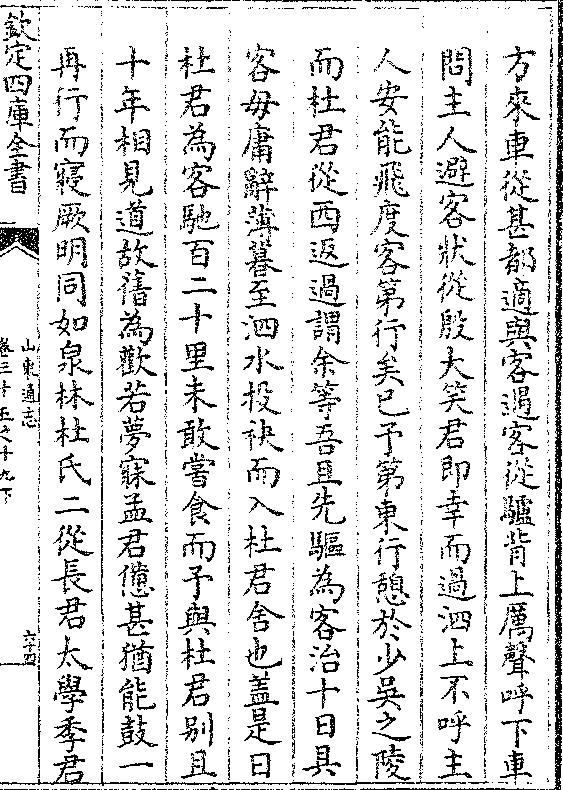 方來車從甚都適與客遇客從驢背上厲聲呼下車
問主人避客狀從殷大笑君即幸而過泗上不呼主
人安能飛度客第行矣已予第東行憩於少吳之陵
而杜君從西返過謂余等吾且先驅為客治十日具
客毋庸辭薄暮至泗水投袂而入杜君舍也蓋是日
杜君為客馳百二十里未敢嘗食而予與杜君别且
十年相見道故舊為歡若夢寐孟君憊甚猶能鼓一
再行而寢厥明同如泉林杜氏二從長君太學季君
欽定四庫全書
山東通志
卷三十五之十九下
六十四